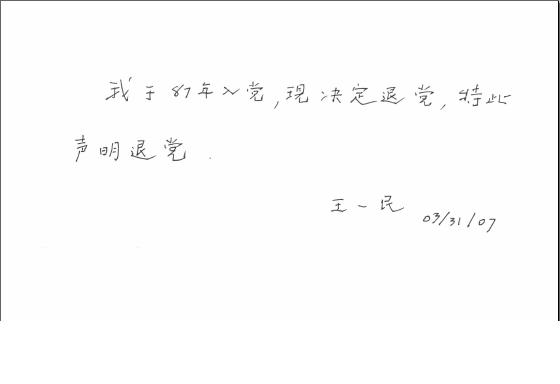 我于87年入党,现决定退党,特此
声明退党.
王一民 03/31/07